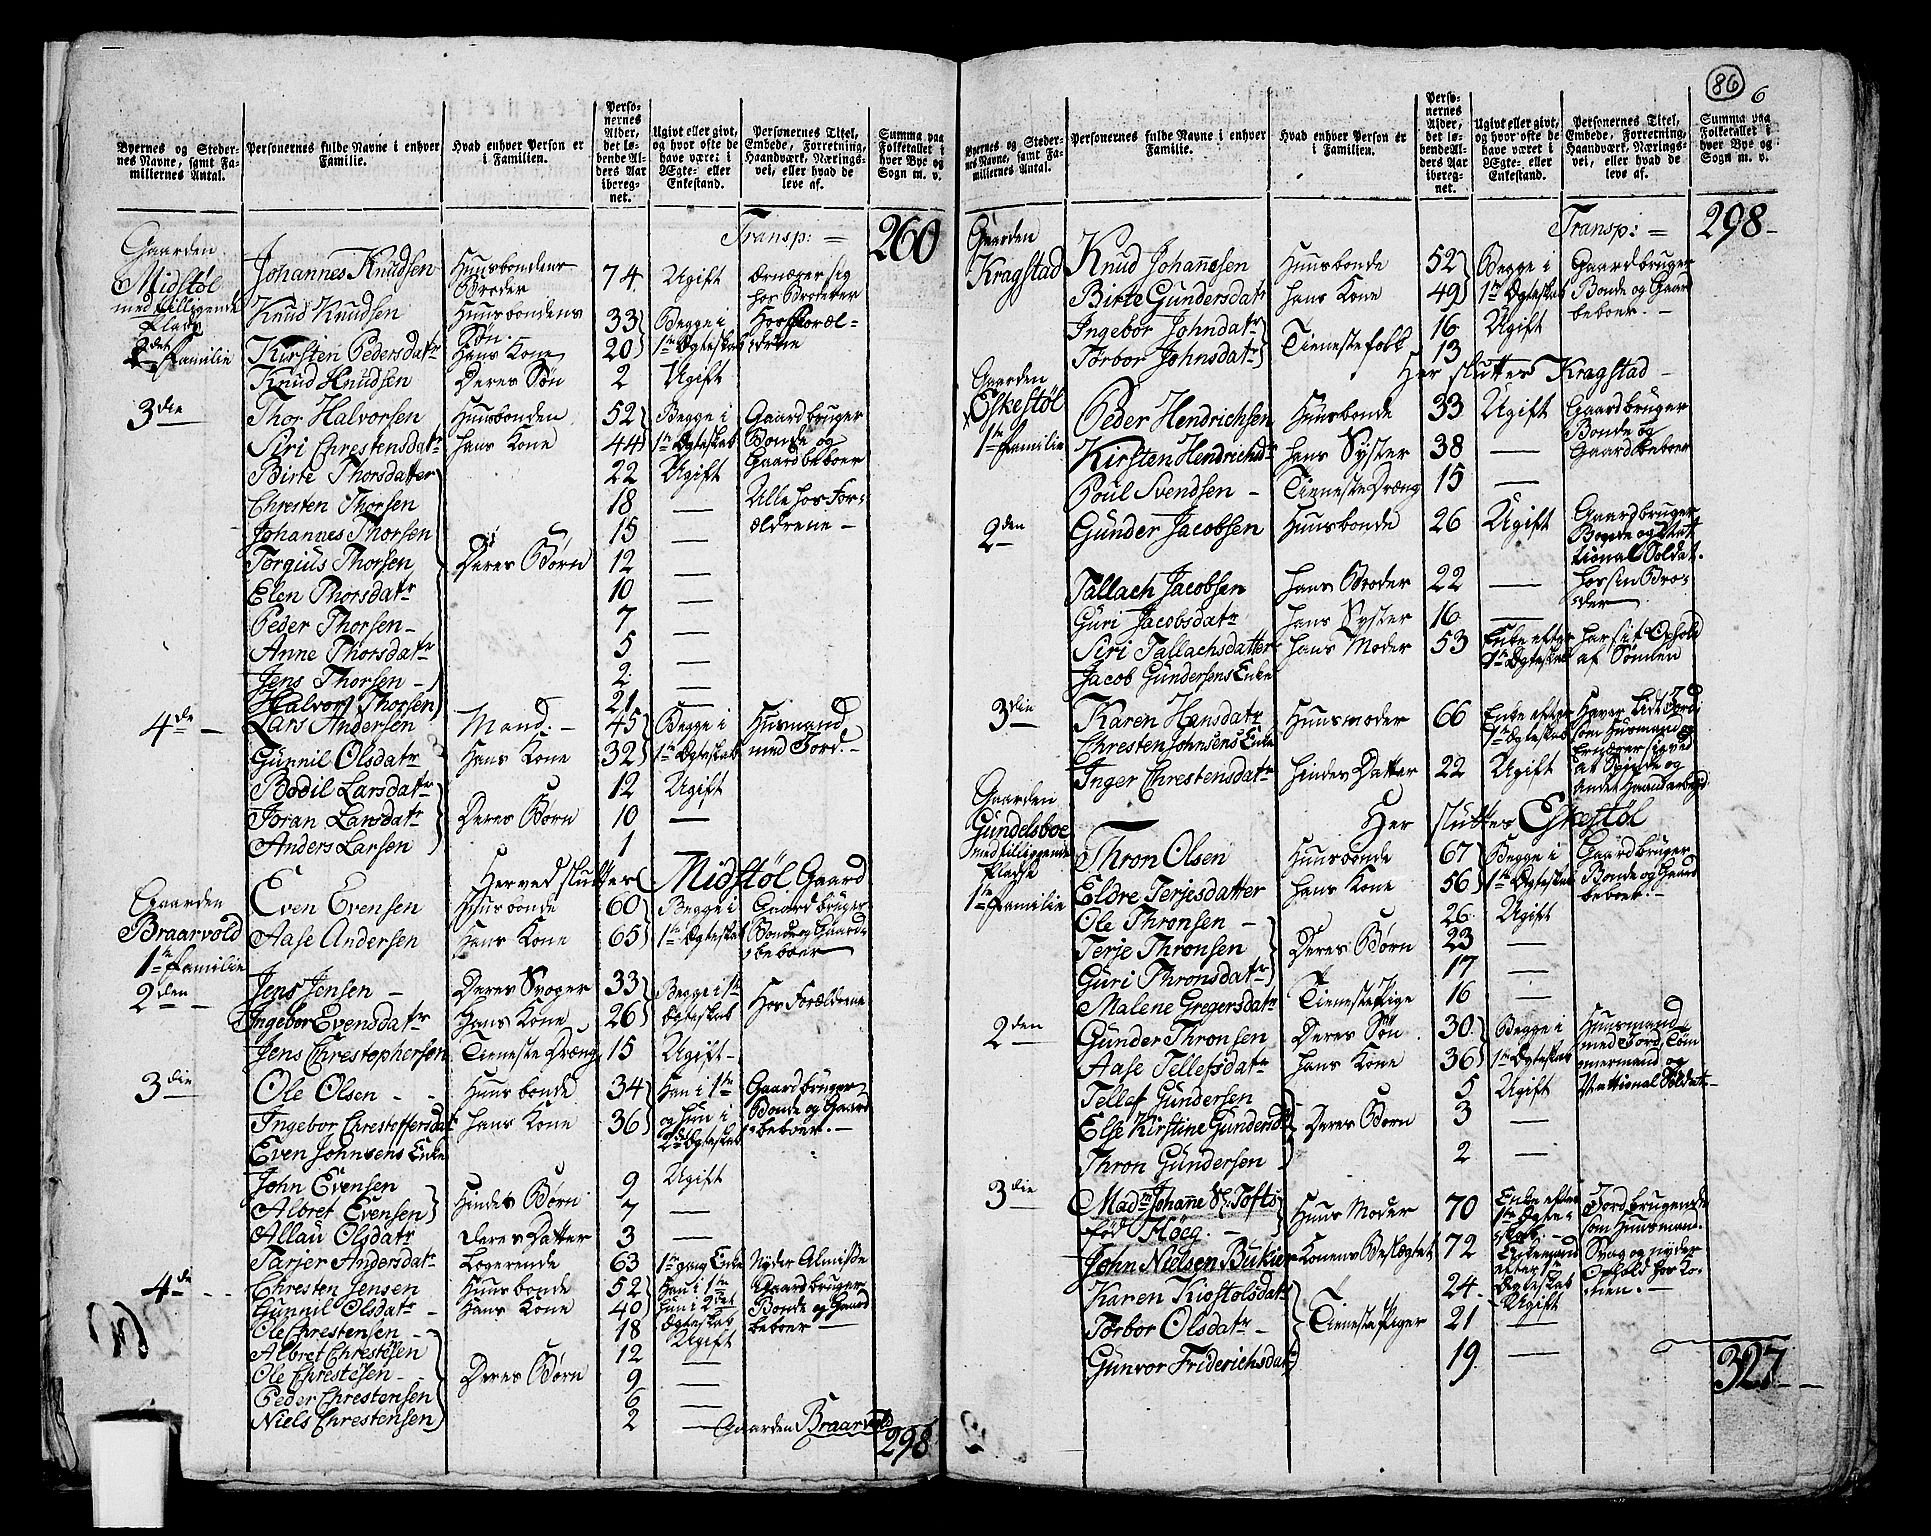 Byernes og Stedernes Navne, samt Familiernes Antal.
Personernes fulde Navne i enhver Familie.
Hvad enhver Person er i Familien.
Personernes Alder, det løbende Alders Aar iberegnet.
Ugivt eller givt, og hvor ofte de have været i Ægte- eller Enkestand.
Personernes Titel, Embede, Forretning, Haandværk, Næringsvei, eller hvad de leve af.
Summa paa Folketallet i hver Bye og Sogn m. v.
Transp: = 260
Gaarden Midstøl med tilliggende Plads
Johannes Knudsen Huusbondens Broder 74 Ugift ernærer sig hos Broderer
2det Familie Knud Knudsen Huusbondens Søn 33 Begge i 1te Ægteskab Hos Forældrene
Kirsten Pedersdatr Hans Kone 20
Knud Knudsen Deres Søn 2 Ugift
3die Thor Halvorsen Huusbonden 52 Begge i 1te Ægteskab Gaardbruger Bonde og Gaardbeboer
Siri Chrestensdatr hans Kone 44
Birte Thorsdatter 22 Ugift Alle hos Forældrene
Chresten Thorsen 18 —
Johannes Thorsen 15 —
Torgius Thorsen Deres Børn 12 —
Elen Thorsdatr 10 —
Peder Thorsen 7 —
Anne Thorsdatr 5 —
Jens Thorsen 2 —
Halvor Thorsen 21 —
4de Lars Andersen Mand 45 Begge i 1te Ægteskab Husmand med Jord
Gunnil Olsdatr Hans Kone 32
Bodil Larsdatr 12 Ugift
Joran Larsdatr Deres Børn 10 —
Anders Larsen 1 —
Herved slutter Midstøl Gaard
Gaarden Braarvold 1te Familie
Even Evensen Huusbonde 60 Begge i 1te Ægteskab Gaardbruger Bonde og Gaardbeboer
Aase Andersen Hans Kone 65
2den Jens Jensen Deres Svoger 33 Begge i 1te Ægteskab Hos Forældrene
Ingebor Evensdatr Hans Kone 26
Jens Chrestophersen Tieneste Dreng 15 Ugift
3die Ole Olsen Huusbonde 34 Han i 1te og hun i 2det Ægteskab Gaardbruger Bonde og Gaardbeboer
Ingebor Chrestoffersdatr hans Kone 36
Even Johnsens Enke
John Evensen 9 Ugift
Albret Evensen Hindes Børn 7 —
Allau Olsdatr deres Datter 3 —
Tarjer Andersdatr Logerende 63 1te gang Enke Nyder Almisse
4de Chresten Jensen Huusbonde 52 Han i 1te hun i 2det Ægteskab Gaardbruger Bonde og Gaardbeboer
Gunnil Olsdatr Hans Kone 40
Ole Chrestensen 18 Ugift
Albret Chrestesen 12 —
Ole Chrestesen Deres Børn 9 —
Peder Chrestensen 6 —
Niels Chrestensen 2 —
Gaarden Braarvold 298
86
6
Byernes og Stedernes Navne, samt Familiernes Antal.
Personernes fulde Navne i enhver Familie.
Hvad enhver Person er i Familien.
Personernes Alder, det løbende Alders Aar iberegnet.
Ugivt eller givt, og hvor ofte de have været i Ægte- eller Enkestand.
Personernes Titel, Embede, Forretning, Haandværk, Næringsvei, eller hvad de leve af.
Summa paa Folketallet i hver Bye og Sogn m. v.
Transp: = 298
Gaarden Kragstad
Knud Johannesen Huusbonde 52 Begge i 1te Ægteskab Gaardbruger Bonde og Gaardbeboer
Birte Gundersdatr hans Kone 49
Ingebor Johndatr Tienestefolk 16 Ugift
Torbor Johnsdatr 13
Her slutter Kragstad
Gaarden Eskestøl 1te Familie
Peder Hendrichsen Huusbonde 33 Ugift Gaardbruger Bonde og Gaardbeboer
Kirsten Hendrichsdr hans Syster 38 —
Poul Svendsen Tieneste Dræng 15 —
2den Gunder Jacobsen Huusbonde 26 Ugift Gaardbruger Bonde og National Soldat
Tallach Jacobsen hans Broder 22 — hos sin Broder
Guri Jacobsdatr hans Syster 16 —
Siri Tallachsdatter hans Moder 53 Enke efter 1te Ægteskab har sit Ophold af Sønnen
Jacob Gundersens Enke
3die Karen Hansdatr Huusmoder 66 Enke efter 1te Ægteskab Haver lidt Jord som Husmand og Ernærer sig ved at Spinde og andet Haandarbejd
Chresten Johnsens Enke
Inger Chrestensdatr hindes Datter 22 Ugift
Her slutter Eskestøl
Gaarden Gundelsboe med tilliggende Pladse 1te Familie
Thron Olsen Huusbonde 67 Begge i 1te Ægteskab Gaardbruger Bonde og Gaardbeboer
Eldre Terjesdatter hans Kone 56
Ole Thronsen 26 Ugift
Terje Thronsen Deres Børn 23 —
Guri Thronsdatr 17 —
Malene Gregersdatr Tieneste Pige 16 —
2den Gunder Thronsen Deres Søn 30 Begge i 1te Ægteskab Huusmand med Jord, Tømmermand og National Soldat
Aase Tellefsdatr hans Kone 36
Tellef Gundersen 5 Ugift
Else Kirstine Gundersdr Deres Børn 3 —
Thron Gundersen 2 —
3die Madm Johanne Sl. Tofts fød Höeg Huus Moder 70 Enke efter 1te Ægteskab Jordbrugende som Huusmand
John Nielsen Bukier Konens Beslægtet 72 Enkemand efter 1te Ægteskab Svag og nyder Ophold hos Konen
Karen Kiostolsdatr 24 Ugift
Torbor Olsdatr Tieneste Piger 21 —
Gunvor Friderichsdatr 19 —
327